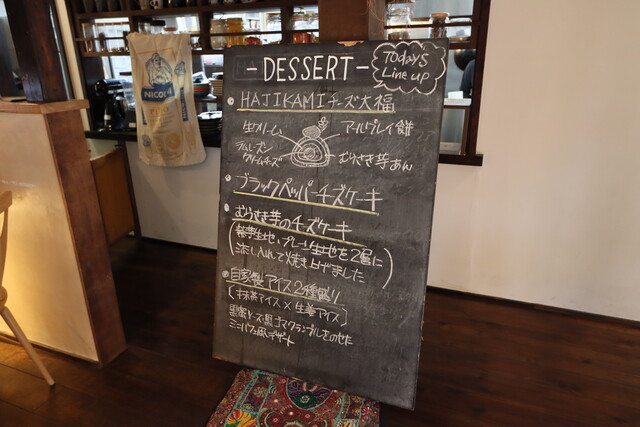 - DESSERT -
TODAY'S
Line up
HAJIKAMIチーズ大福
生クリーム
アールグレイ餅
ラムレーズン
クリームチーズ
むらさき芋あん
ブラックペッパーチーズケーキ
むらさき芋のチーズケーキ
(紫芋生地・プレーン生地を2層に
流し入れて焼き上げました)
自家製アイス2種盛り
[抹茶アイス×生姜アイス]
黒ゴマクランブルをのせた
ミニパフェ風デザート
NICOI